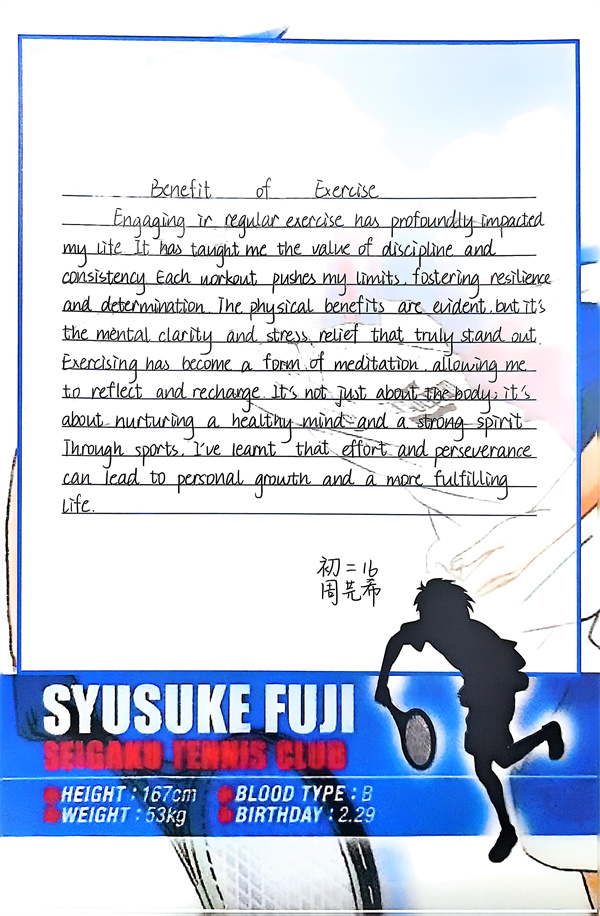 Benefit of Exercise
Engaging in regular exercise has profoundly impacted
my life. It has taught me the value of discipline and
consistency. Each workout pushes my limits, fostering resilience
and determination. The physical benefits are evident, but it's
the mental clarity and stress relief that truly stand out.
Exercising has become a form of meditation, allowing me
to reflect and recharge. It's not just about the body; it's
about nurturing a healthy mind and a strong spirit.
Through sports, I've learnt that effort and perseverance
can lead to personal growth and a more fulfilling
life.
初二16
周芫希
SYUSUKE FUJI
SEIGAKU TENNIS CLUB
HEIGHT : 167cm BLOOD TYPE : B
WEIGHT : 53kg BIRTHDAY : 2.29